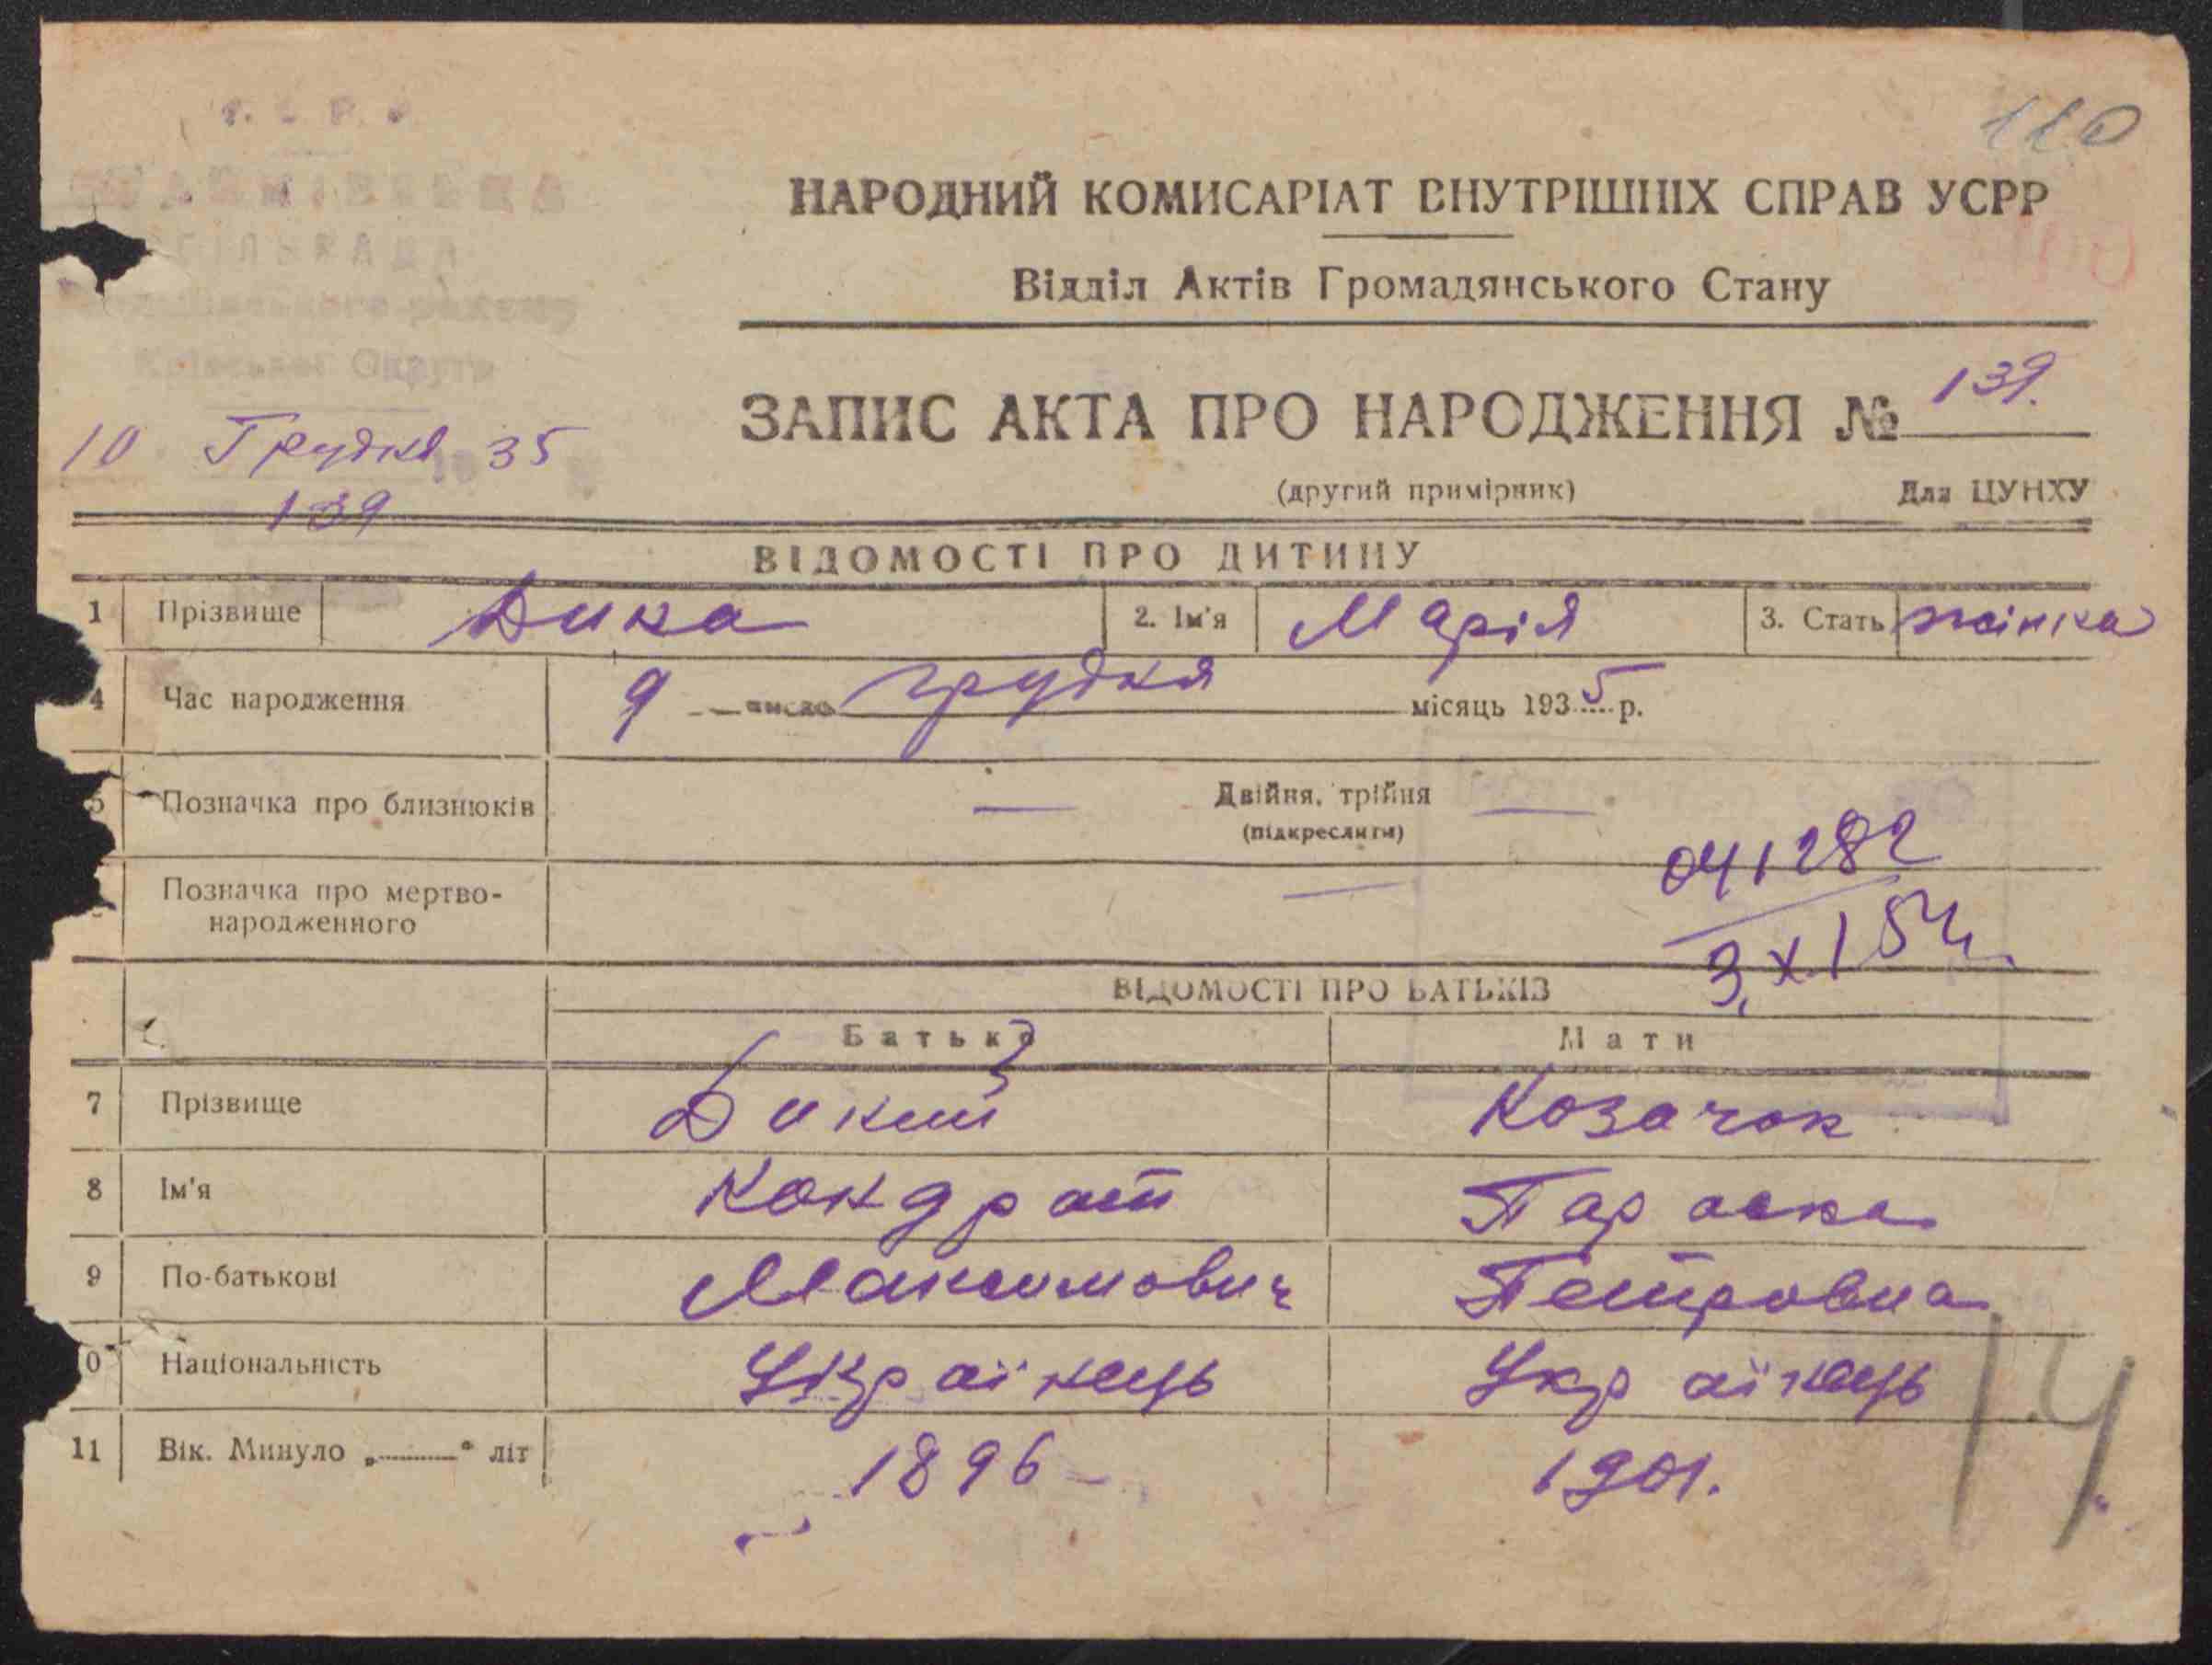 110
НАРОДНИЙ КОМИСАРІАТ ВНУТРІШНІХ СПРАВ УСРР
Відділ Актів Громадянського Стану
СІЛЬРАДА
району
Київської Округи
ЗАПИС АКТА ПРО НАРОДЖЕННЯ № 139.
10 Грудня 35
(другий примірник) Для ЦУНХУ
139
ВІДОМОСТІ ПРО ДИТИНУ
1 Прізвище Дика 2. Ім'я Марія 3. Стать жінка
4 Час народження 9 число грудня місяць 1935 р.
5 Позначка про близнюків — Двійня, трійня —
(підкреслити)
041282
Позначка про мертво-
народженного —
3.XI 54
ВІДОМОСТІ ПРО БАТЬКІВ
Батько Мати
7 Прізвище Дикий Козачок
8 Ім'я Кондрат Параска
9 По-батькові Максимович Петровна
0 Національність Українець Українець
11 Вік. Минуло „ “ літ 1896 1901.
14